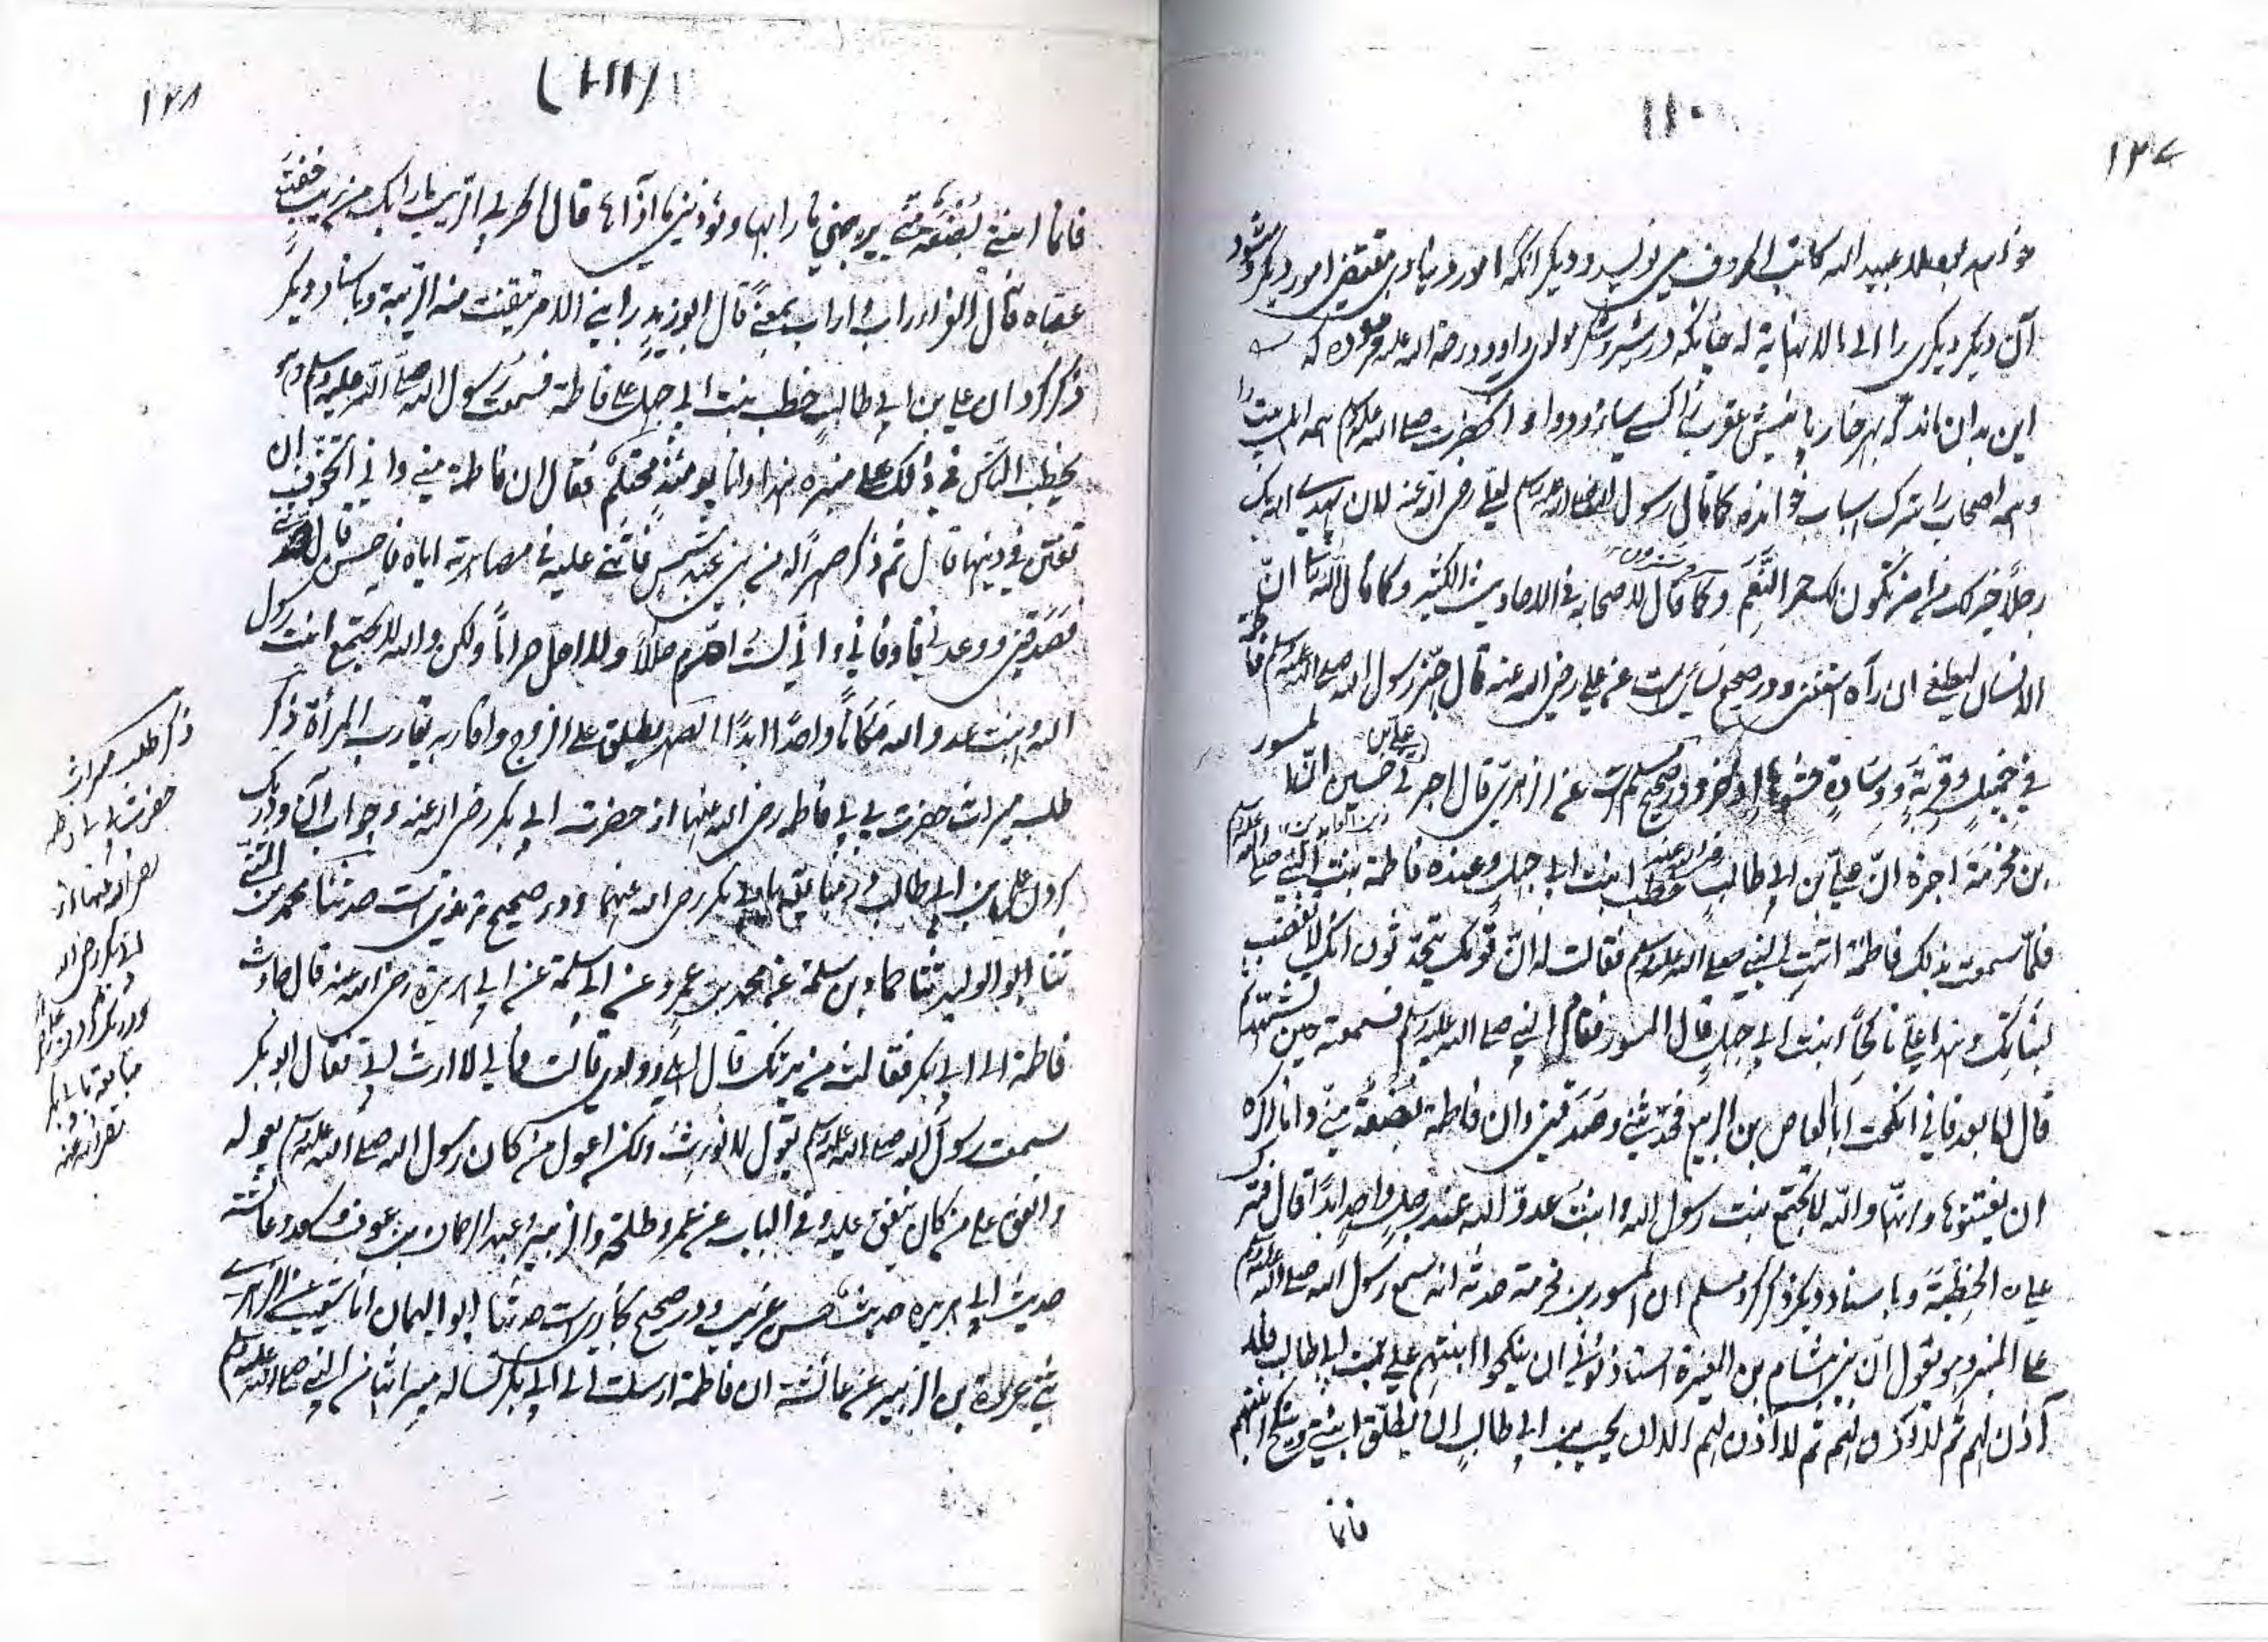 ١١٠
١٢٧
عبيد الله كاتب الحروف مى نويسد و ديگر آنكه امور دنياوى مقتضى امور ديگر مى شود
آن ديگر ديگرى را الى ما لا نهاية له چنانكه در
اين بدان ماند كه هر خار يا نيش عقرب را كسى و آنحضرت صلى الله عليه وسلم همه اهل بيت را
و همه اصحاب را بترك اسباب خوانده كما قال رسول الله صلى الله عليه وسلم لعلي رضي الله عنه لان يهدي الله بك
رجلاً خير لك من ان تكون لك حمر النَّعَم و كما قال لاصحابه في الاحاديث الكثير و كما قال الله تعالى انّ
الانسان ليطغى ان رآه استغنى و در صحيح نسائي است عن علي رضي الله عنه قال جهّز رسول الله صلى الله عليه وسلم فاطمة
في خميل وقربة ووسادة حشوها اذخر و در صحيح مسلم است عن الزهري قال اخبرني علي بن حسين انّ المسور
بن مخرمة اخبره انّ علي بن ابي طالب رضي الله عنه خطب ابنت ابي جهل وعنده فاطمة بنت النبي صلى الله عليه وسلم
فلمّا سمعت بذلك فاطمة اتت النبي صلى الله عليه وسلم فقالت له انّ قومك يتحدّثون انك لا تغضب
لبناتك وهذا علي ناكحاً ابنت ابي جهل قال المسور فقام النبي صلى الله عليه وسلم فسمعته حين تشهد ثم
قال اما بعد فاني انكحت ابا العاص بن الربيع فحدّثني وصَدَقني وان فاطمة بضعة مني وانما اكره
ان يفتنوها وانها والله لا تجتمع بنت رسول الله وابنت عدوّ الله عند رجل واحد ابداً قال فترك
علي الخِطبة و باسناد ديگر ذكر كرد مسلم ان المسور بن مخرمة حدثه انه سمع رسول الله صلى الله عليه وسلم
على المنبر وهو يقول انّ بني هشام بن المغيرة استأذنوني ان ينكحوا ابنتهم علي بن ابي طالب فلا
آذن لهم ثم لا آذن لهم ثم لا آذن لهم الا ان يحب بن ابي طالب ان يطلّق ابنتي وينكح ابنتهم
فانما
١٢٨
(١١١)
فانما ابنتي بضعة مني يريبني ما رابها ويؤذيني ما آذاها قال الحربي الريب ما رابك من شيء خفت
عقباه قال الفراء راب و اراب بمعنى قال ابو زيد رابني الامر تيقنت منه الريبة و باسناد ديگر
ذكر كرد ان علي بن ابي طالب خطب بنت ابي جهل على فاطمة فسمعت رسول الله صلى الله عليه وسلم وهو
يخطب الناس في ذلك على منبره هذا وانا يومئذ محتلم فقال ان فاطمة مني واني اتخوف ان
تفتن في دينها قال ثم ذكر صهراً له من بني عبد شمس فاثنى عليه في مصاهرته اياه فاحسن قال حدثني
فصدقني ووعدني فاوفاني واني لست احرّم حلالاً ولا احل حراماً ولكن والله لا تجتمع ابنت رسول
الله وابنت عدو الله مكاناً واحدًا ابدًا الصهر يطلق على الزوج واقاربه واقارب المرأة ذكر
طلب ميراث حضرت بي بي فاطمه رضي الله عنها از حضرت ابي بكر رضي الله عنه و جواب آن و درنگ
كردن علي بن ابي طالب در مبايعت با ابي بكر رضي الله عنهما و در صحيح ترمذي است حدثنا محمد بن المثنى
ثنا ابو الوليد ثنا حماد بن سلمة عن محمد بن عمرو عن ابي سلمة عن ابي هريرة رضي الله عنه قال جاءت
فاطمة الى ابي بكر فقالت من يرثك قال اهلي وولدي قالت فما لي لا ارث ابي فقال ابو بكر
سمعت رسول الله صلى الله عليه وسلم يقول لا نورث ولكن اعول من كان رسول الله صلى الله عليه وسلم يعوله
وانفق على من كان ينفق عليه وفي الباب عن عمر وطلحة والزبير وعبد الرحمان بن عوف وسعد وعائشة
حديث ابي هريرة حديث حسن غريب و در صحيح بخاري است حدثنا ابو اليمان انا شعيب عن الزهري
ثني عروة بن الزبير عن عائشة ان فاطمة ارسلت الى ابي بكر تساله ميراثها من النبي صلى الله عليه وسلم
ذكر طلب ميراث
حضرت فاطمه
رضي الله عنها از
ابي بكر رضي الله
و درنگ كردن علي در
مبايعت با ابي بكر
رضي الله عنه